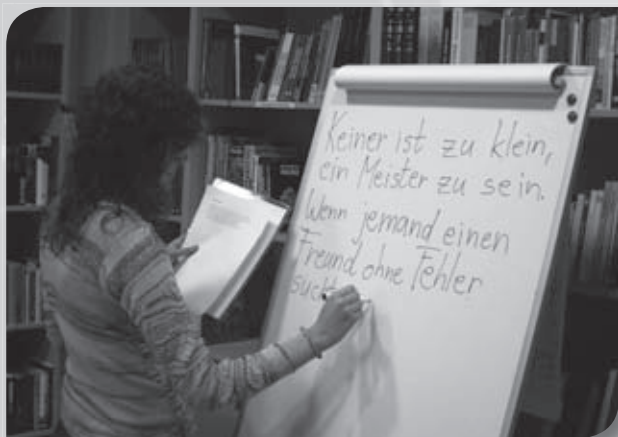 Keiner ist zu klein,
ein Meister zu sein.
Wenn jemand einen
Freund ohne Fehler
sucht